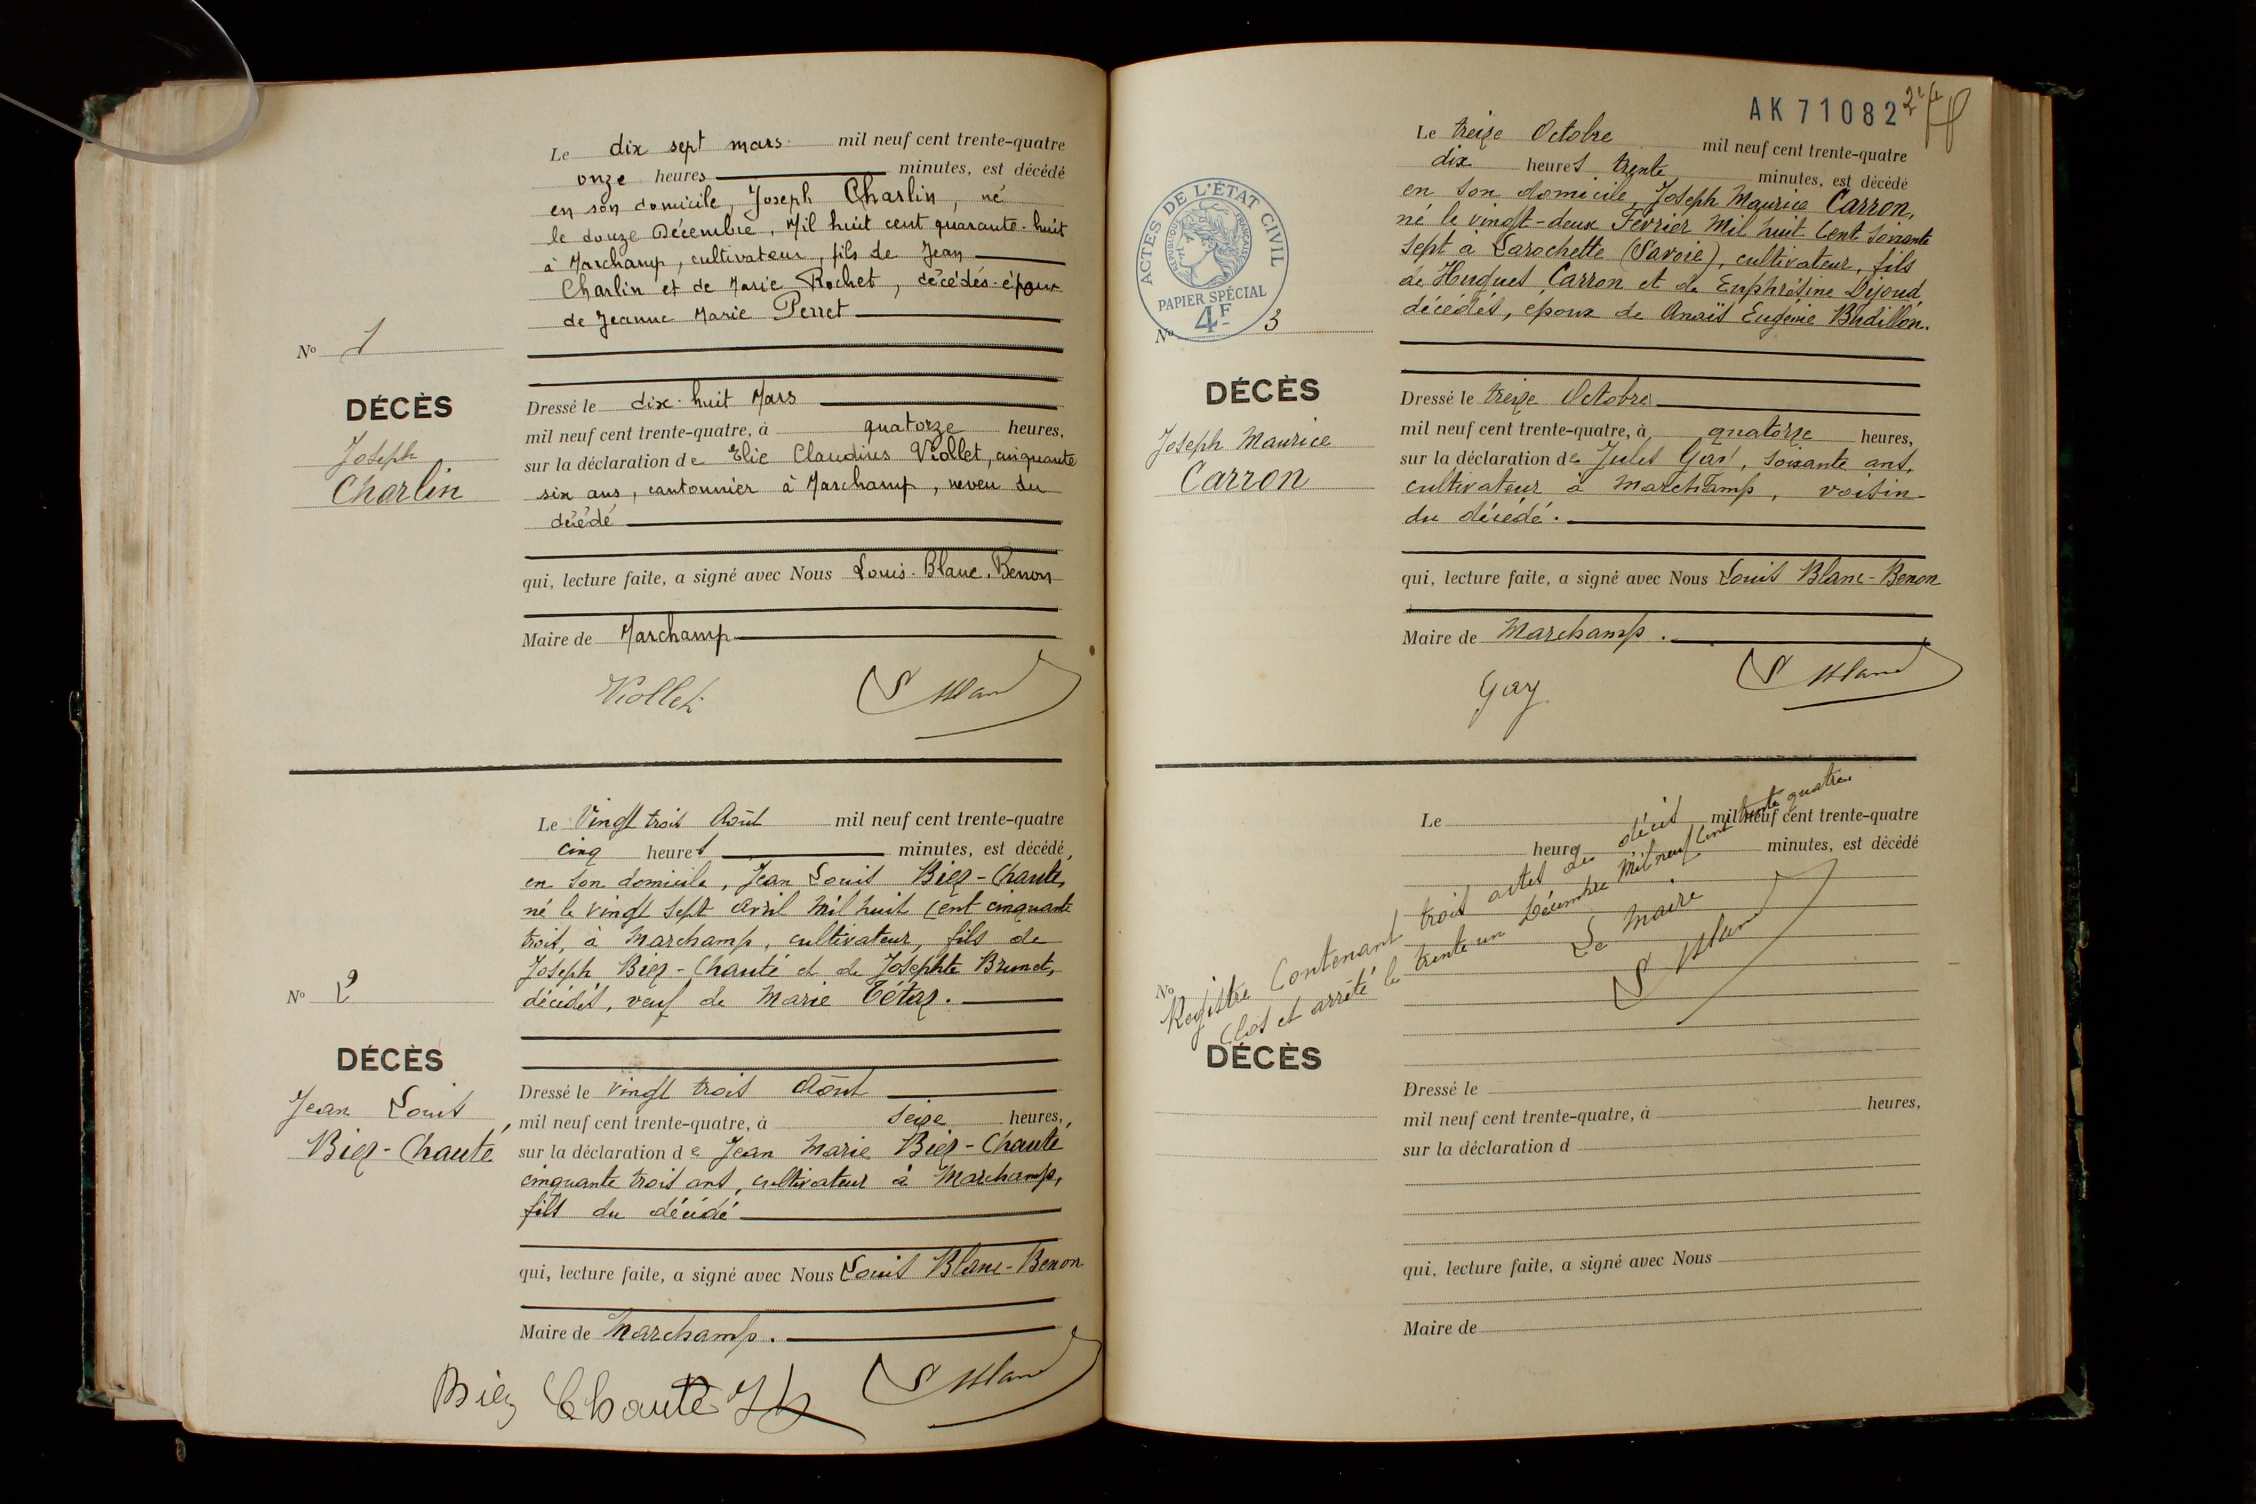 Le dix sept mars mil neuf cent trente-quatre
onze heures minutes, est décédé
en son domicile, Joseph Charlin, né
le douze Décembre, Mil huit cent quarante-huit
à Marchamp, cultivateur, fils de Jean
Charlin et de Marie Rochet, décédés-époux
de Jeanne Marie Perret
No 1
DÉCÈS
Joseph
Charlin
Dressé le dix-huit Mars
mil neuf cent trente-quatre, à quatorze heures,
sur la déclaration de Elie Claudius Viollet, cinquante
six ans, cantonnier à Marchamp, neveu du
décédé
qui, lecture faite, a signé avec Nous Louis-Blanc-Benon
Maire de Marchamp
Viollet
L Blanc
Le Vingt trois Août mil neuf cent trente-quatre
cinq heures minutes, est décédé,
en son domicile, Jean Louis Biez-Chauté,
né le vingt sept avril Mil huit Cent cinquante
trois, à Marchamp, cultivateur, fils de
Joseph Biez-Chauté et de Josephte Brunet,
décédés, veuf de Marie Tétaz.
No 2
DÉCÈS
Jean Louis
Biez-Chauté
Dressé le vingt trois Août
mil neuf cent trente-quatre, à seize heures,
sur la déclaration de Jean Marie Biez-Chauté
cinquante trois ans, cultivateur à Marchamp,
fils du décédé
qui, lecture faite, a signé avec Nous Louis Blanc-Benon
Maire de Marchamp.
Biez Chauté
L Blanc
AK 71082
Le treize Octobre mil neuf cent trente-quatre
dix heures trente minutes, est décédé
en son domicile, Joseph Maurice Carron,
né le vingt-deux Février Mil huit Cent soixante
sept à Larochette (Savoie), cultivateur, fils
de Hugues Carron et de Euphrosine Dijoud
décédés, époux de Anaïs Eugénie Budillon.
ACTES DE L'ÉTAT CIVIL
RÉPUBLIQUE FRANÇAISE
PAPIER SPÉCIAL
4F
No 3
DÉCÈS
Joseph Maurice
Carron
Dressé le treize Octobre
mil neuf cent trente-quatre, à quatorze heures,
sur la déclaration de Jules Gay, soixante ans,
cultivateur à Marchamp, voisin
du décédé.
qui, lecture faite, a signé avec Nous Louis Blanc-Benon
Maire de Marchamp.
Gay
L Blanc
Le mil neuf cent trente-quatre
heures minutes, est décédé
Registre Contenant trois actes de décès
Clos et arrêté le trente un Décembre Mil neuf Cent trente quatre
Le Maire
L Blanc
No
DÉCÈS
Dressé le
mil neuf cent trente-quatre, à heures,
sur la déclaration d
qui, lecture faite, a signé avec Nous
Maire de